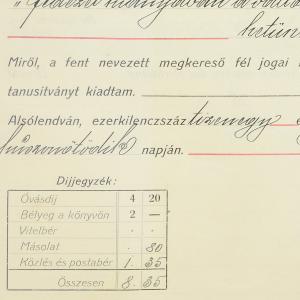 „fedezet hiányában
hetün
Miről, a fent nevezett megkereső fél jogai
tanusitványt kiadtam.
Alsólendván, ezerkilenczszáz tizenegy
huszonötödik napján.
Díjjegyzék:
Óvásdíj 4 20
Bélyeg a könyvön 2 —
Vitelbér . .
Másolat . 80
Közlés és postabér 1. 35
Összesen 8. 35